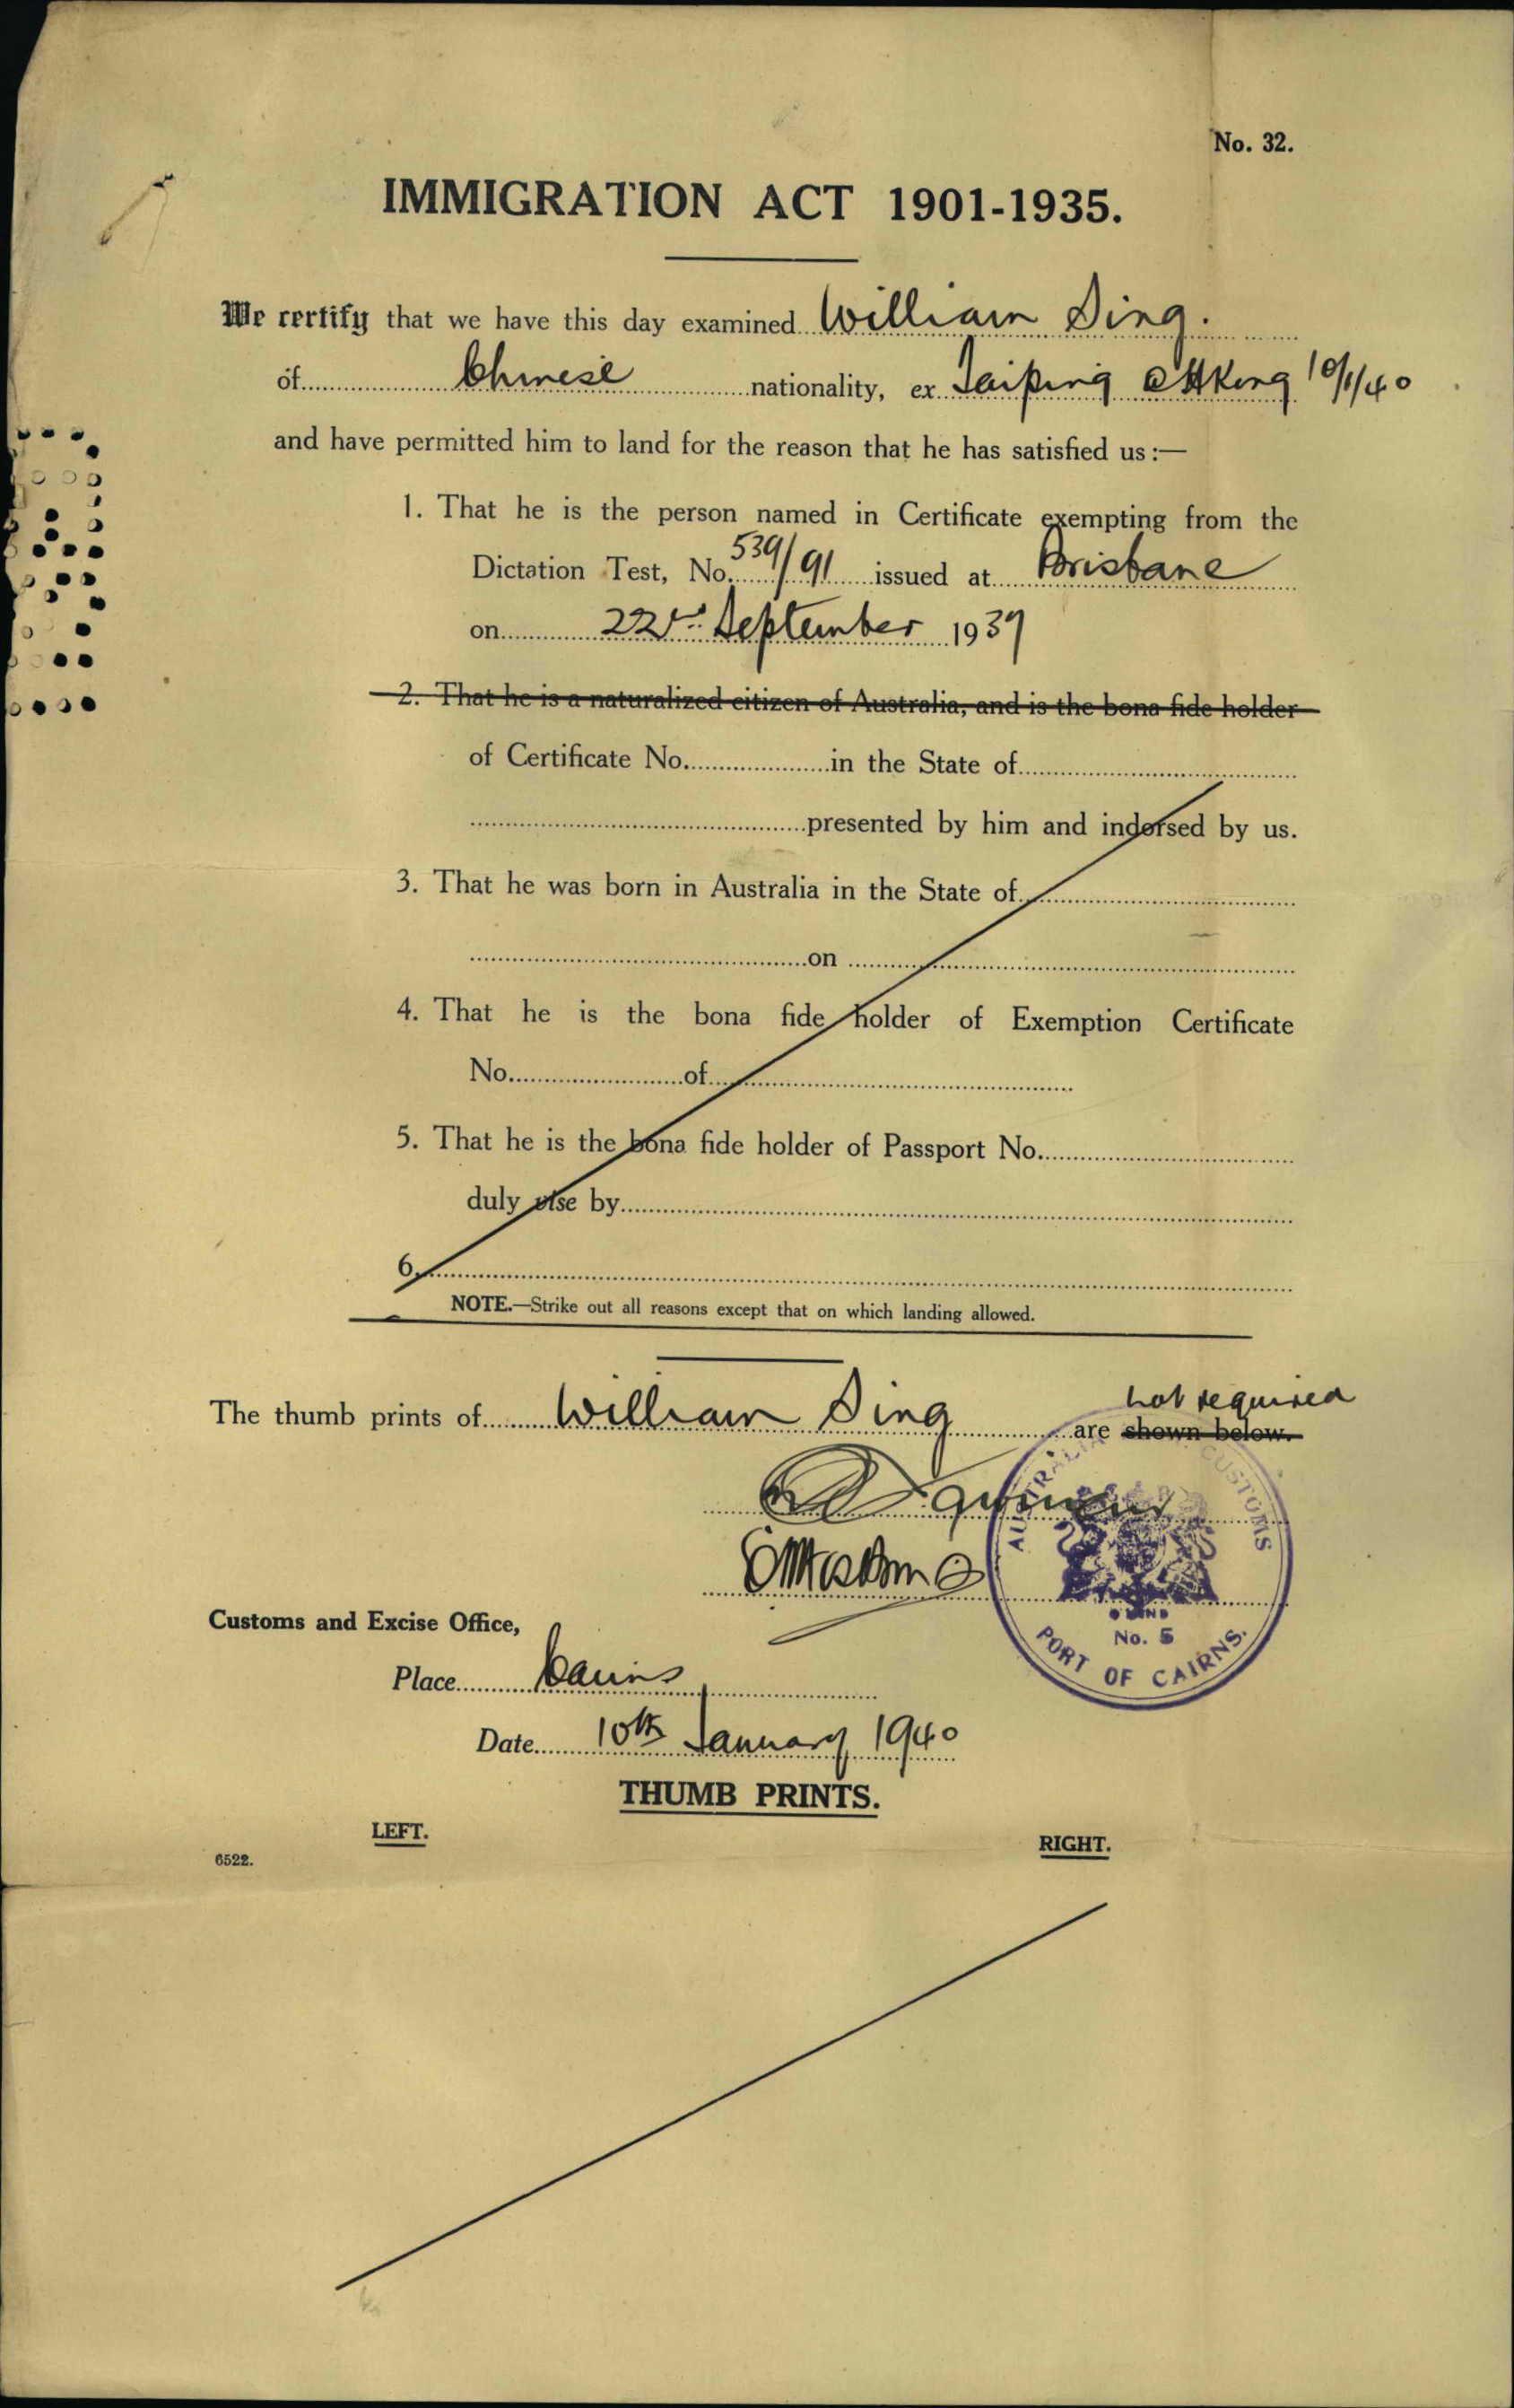 No. 32.
IMMIGRATION ACT 1901-1935.
We certify that we have this day examined William Sing.
of Chinese nationality, ex Taiping @ HKong 10/1/40
and have permitted him to land for the reason that he has satisfied us :—
1. That he is the person named in Certificate exempting from the
Dictation Test, No. 539/91 issued at Brisbane
on 22nd September 1939
2. That he is a naturalized citizen of Australia, and is the bona fide holder
of Certificate No. in the State of
presented by him and indorsed by us.
3. That he was born in Australia in the State of
on
4. That he is the bona fide holder of Exemption Certificate
No. of
5. That he is the bona fide holder of Passport No.
duly vise by
6.
NOTE.—Strike out all reasons except that on which landing allowed.
not required
The thumb prints of William Sing are shown below.
AUSTRALIA CUSTOMS
No. 5
PORT OF CAIRNS.
Customs and Excise Office,
Place Cairns
Date 10th January 1940
THUMB PRINTS.
LEFT.
RIGHT.
6522.